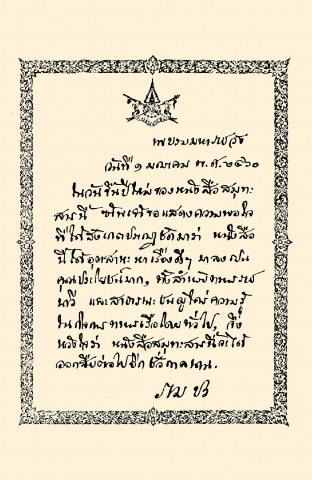 พระบรมมหาราชวัง
วันที่ ๑ มกราคม พ.ศ. ๒๔๖๐
ในวันขึ้นปีใหม่ของหนังสือสมุทะ
สารนี้ ข้าพเจ้าขอแสดงความพอใจ
ที่ได้สังเกตปรากฏชัดมาว่า หนังสือ
นี้ได้อุตสาหะหาเรื่องดีๆ มาลงเปน
คุณประโยชน์มาก, ทั้งสำหรับราช
นาวี และสาธารณะชนผู้ใฝ่ความรู้
ในกิจการเรือโดยทั่วไป, จึ่ง
หวังใจว่า หนังสือสมุทะสารนี้จะได้
ออกสืบต่อไปอีก ชั่วกาลนาน.
ราม ปร